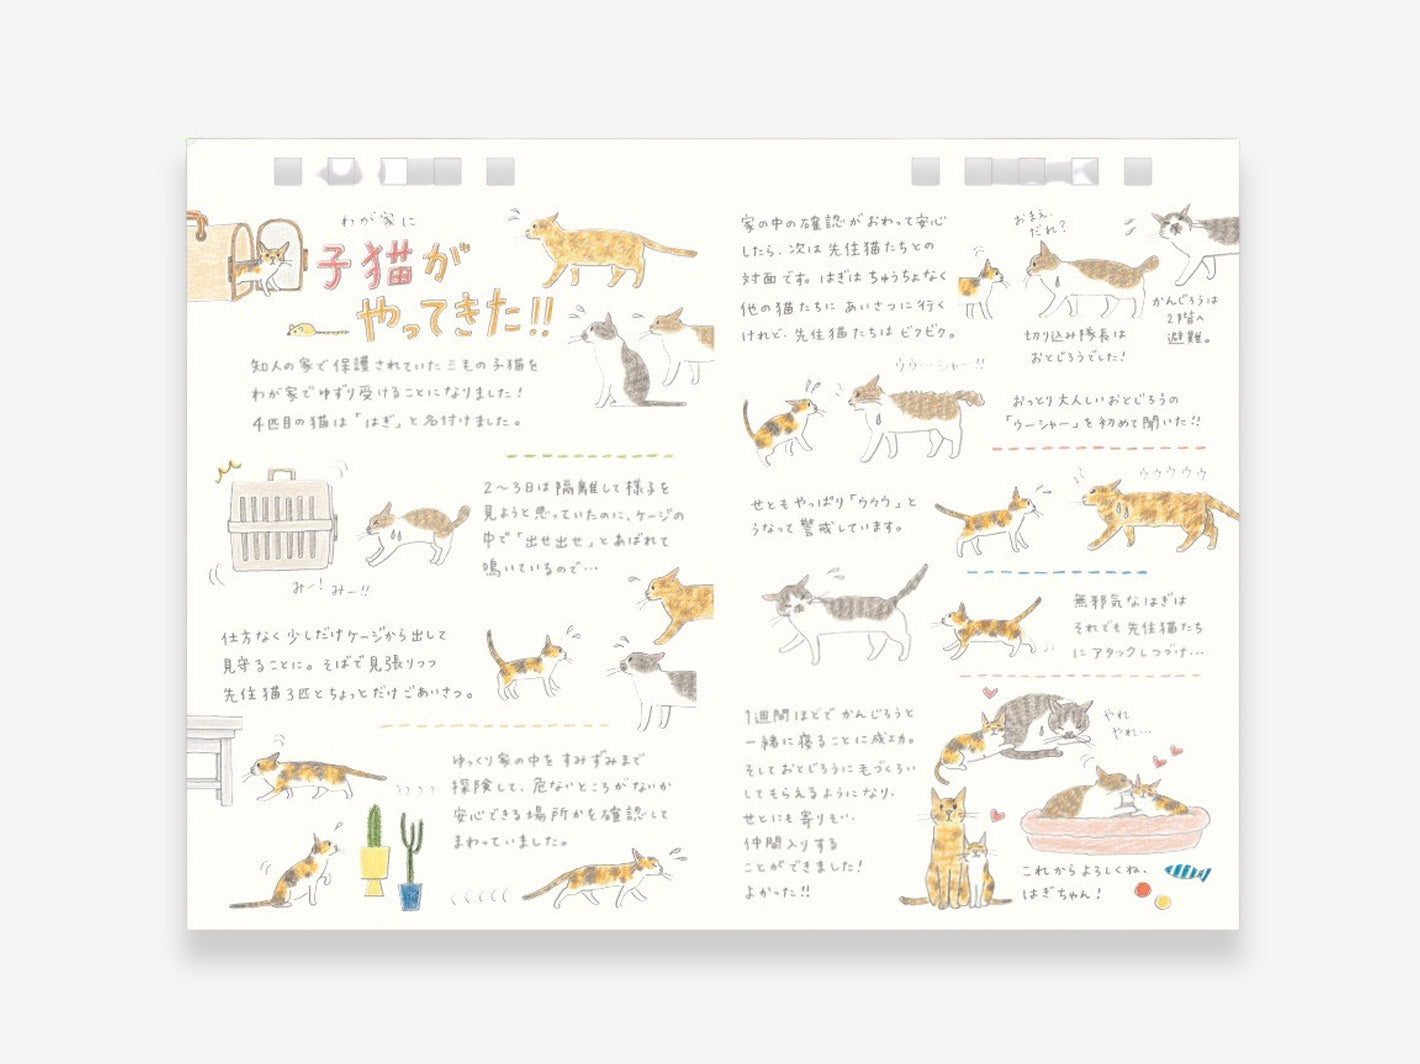 わが家に
子猫が
やってきた!!
知人の家で保護されていた三毛の子猫を
わが家でゆずり受けることになりました!
4匹目の猫は「はぎ」と名付けました。
2〜3日は隔離して様子を
見ようと思っていたのに、ケージの
中で「出せ出せ」とあばれて
鳴いているので…
みー!みー!!
仕方なく少しだけケージから出して
見守ることに。そばで見張りつつ
先住猫3匹とちょっとだけごあいさつ。
ゆっくり家の中をすみずみまで
探険して、危ないところがないか
安心できる場所かを確認して
まわっていました。
家の中の確認がおわって安心
したら、次は先住猫たちとの
対面です。はぎはちゅうちょなく
他の猫たちにあいさつに行く
けれど、先住猫たちはビクビク。
おまえ、
だれ?
切り込み隊長は
おとじろうでした!
かんじろうは
2階へ
避難。
ウウ…シャー!!
おっとり大人しいおとじろうの
「ウーシャー」を初めて聞いた!!
せともやっぱり「ウウウ」と
うなって警戒しています。
ウウウウウ
無邪気なはぎは
それでも先住猫たち
にアタックしつづけ…
1週間ほどでかんじろうと
一緒に寝ることに成功。
そしておとじろうに毛づくろい
してもらえるようになり、
せとにも寄りそい、
仲間入りする
ことができました!
よかった!!
やれ
やれ…
これからよろしくね、
はぎちゃん!